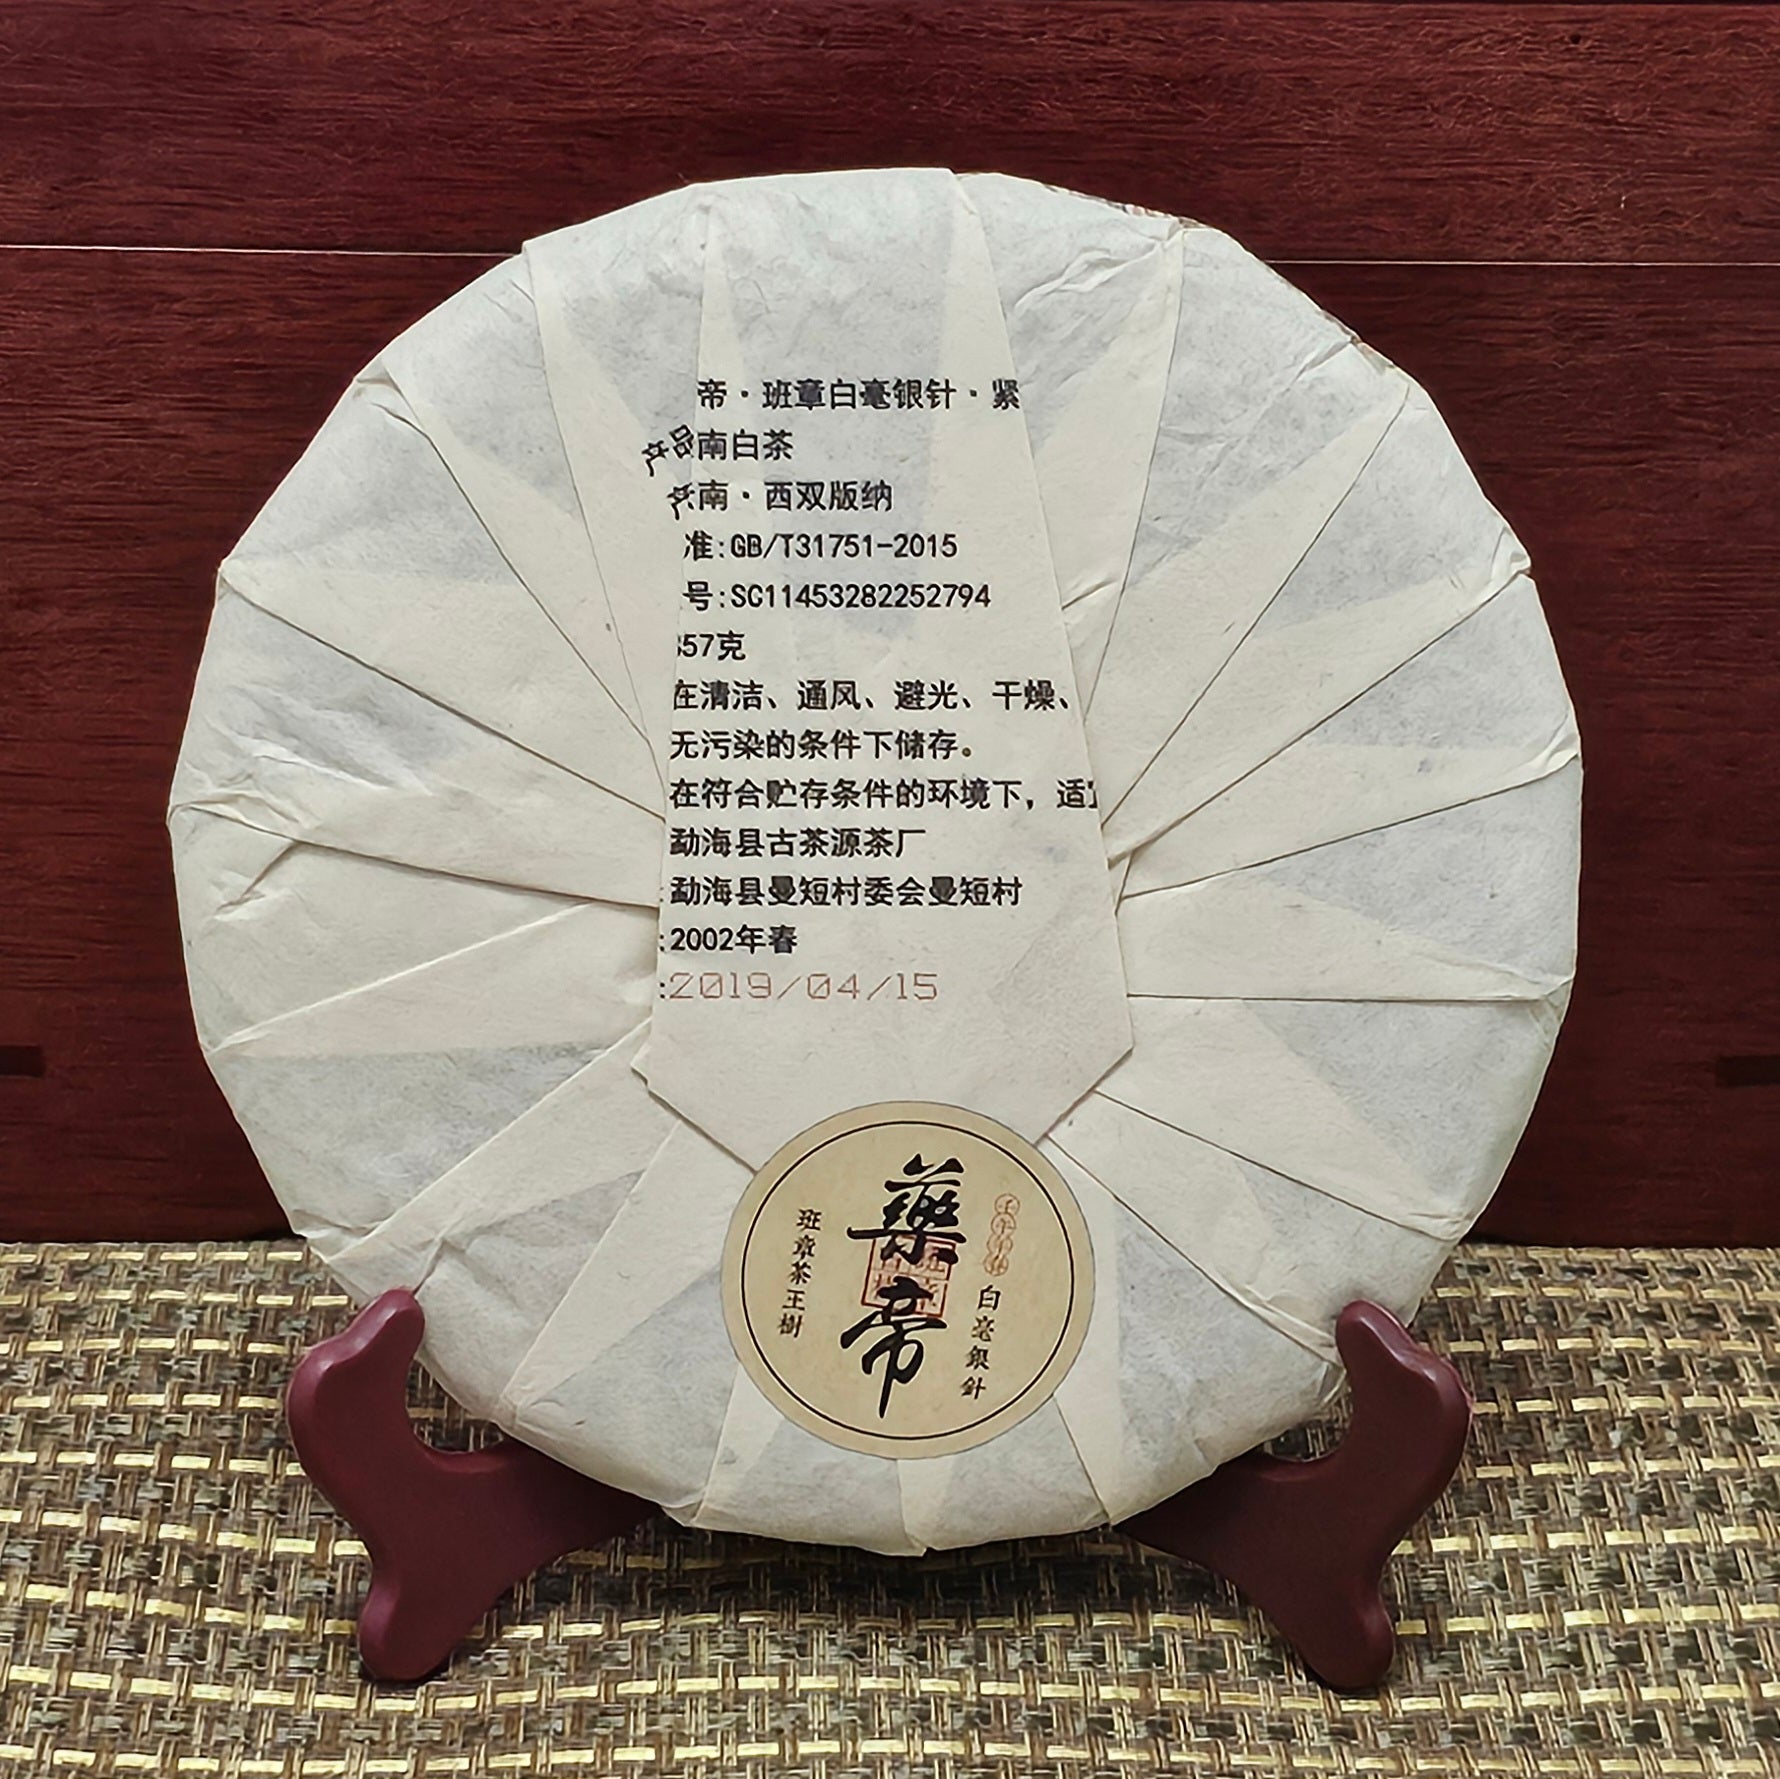 帝·班章白毫银针·紧
产品
南白茶
南·西双版纳
准:GB/T31751-2015
号:SC11453282252794
357克
在清洁、通风、避光、干燥、
无污染的条件下储存。
在符合贮存条件的环境下，适宜
勐海县古茶源茶厂
:勐海县曼短村委会曼短村
:2002年春
:2019/04/15
藥帝
班章茶王樹
白毫銀針